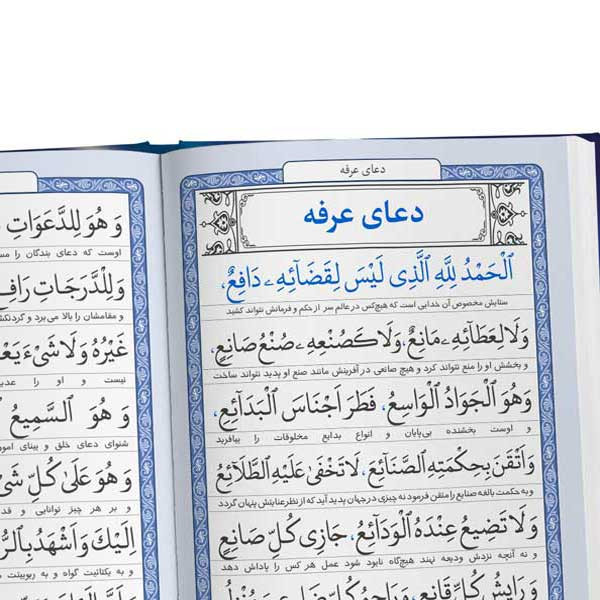 دعای عرفه
دعای عرفه
اَلْحَمْدُ لِلّٰهِ الَّذِی لَیْسَ لِقَضَآئِهِ دَافِعٌ،
ستایش مخصوص آن خدایی است که هیچ‌کس در عالم سر از حکم و فرمانش نتواند کشید
وَلَا لِعَطَآئِهِ مَانِعٌ، وَلَا کَصُنْعِهِ صُنْعُ صَانِعٍ،
و بخشش او را منع نتواند کرد و هیچ صانعی در آفرینش مانند صنع او پدید نتواند ساخت
وَهُوَ الْجَوَادُ الْوَاسِعُ، فَطَرَ اَجْنَاسَ الْبَدَآئِعِ،
و اوست بخشنده بی‌پایان و انواع بدایع مخلوقات را بیافرید
وَاَتْقَنَ بِحِکْمَتِهِ الصَّنَآئِعَ، لَا تَخْفیٰ عَلَیْهِ الطَّلَآئِعُ
و به حکمت بالغه صنایع را متقن فرمود نه چیزی در جهان پدید آید که از نظر عنایتش پنهان گردد
وَلَا تَضِیعُ عِنْدَهُ الْوَدَآئِعُ، جَازِی کُلِّ صَانِعٍ
و نه آنچه نزدش ودیعه نهند هیچگاه نابود شود عمل هر کس را پاداش دهد
وَرَایِشُ کُلِّ قَانِعٍ، وَرَاحِمُ کُلِّ
وَ هُوَ لِلدَّعَوَاتِ
اوست که دعای بندگان را
وَلِلْدَّرَجَاتِ
و مقامشان را بالا می‌برد و
غَیْرُهُ وَلَا شَیْءَ
نیست و او را
وَ هُوَ السَّمِیعُ
شنوای دعای خلق و بینای
وَ هُوَ عَلیٰ کُلِّ
و بر هر چیز توانایی و
اِلَیْكَ وَاَشْهَدُ
و به یکتائیت گواه و به